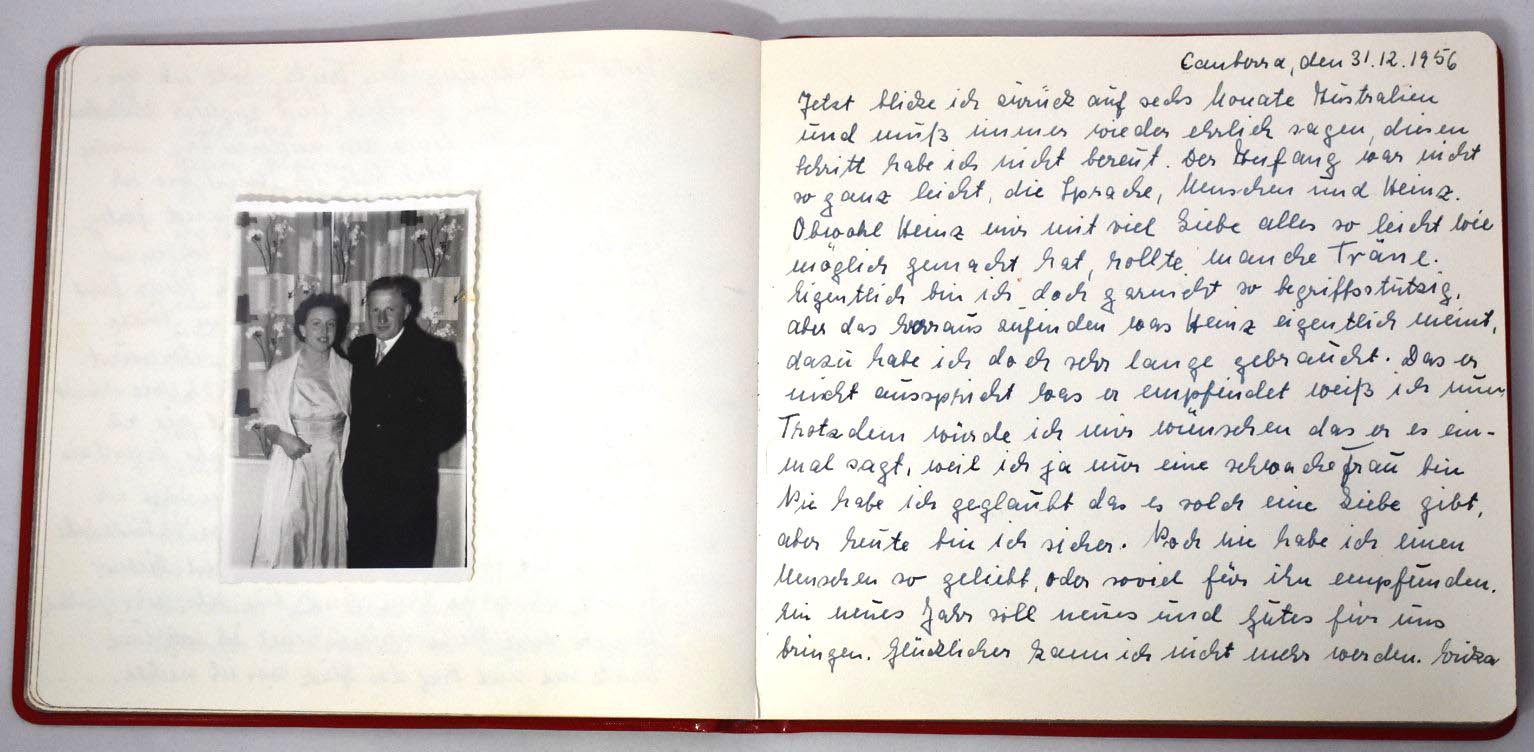 Canberra, den 31.12.1956
Jetzt blicke ich zurück auf sechs Monate Australien
und muß immer wieder ehrlich sagen, diesen
Schritt habe ich nicht bereut. Der Anfang war nicht
so ganz leicht, die Sprache, Menschen und Heinz.
Obwohl Heinz mir mit viel Liebe alles so leicht wie
möglich gemacht hat, rollte manche Träne.
Eigentlich bin ich doch garnicht so begriffsstutzig,
aber das herauszufinden was Heinz eigentlich meint,
dazu habe ich doch sehr lange gebraucht. Das er
nicht ausspricht was er empfindet weiß ich nun
Trotzdem würde ich mir wünschen das er es ein-
mal sagt, weil ich ja nur eine schwache Frau bin
Nie habe ich geglaubt das es solch eine Liebe gibt,
aber heute bin ich sicher. Noch nie habe ich einen
Menschen so geliebt, oder soviel für ihn empfunden.
Ein neues Jahr soll neues und Gutes für uns
bringen. Glücklicher kann ich nicht mehr werden. Erika